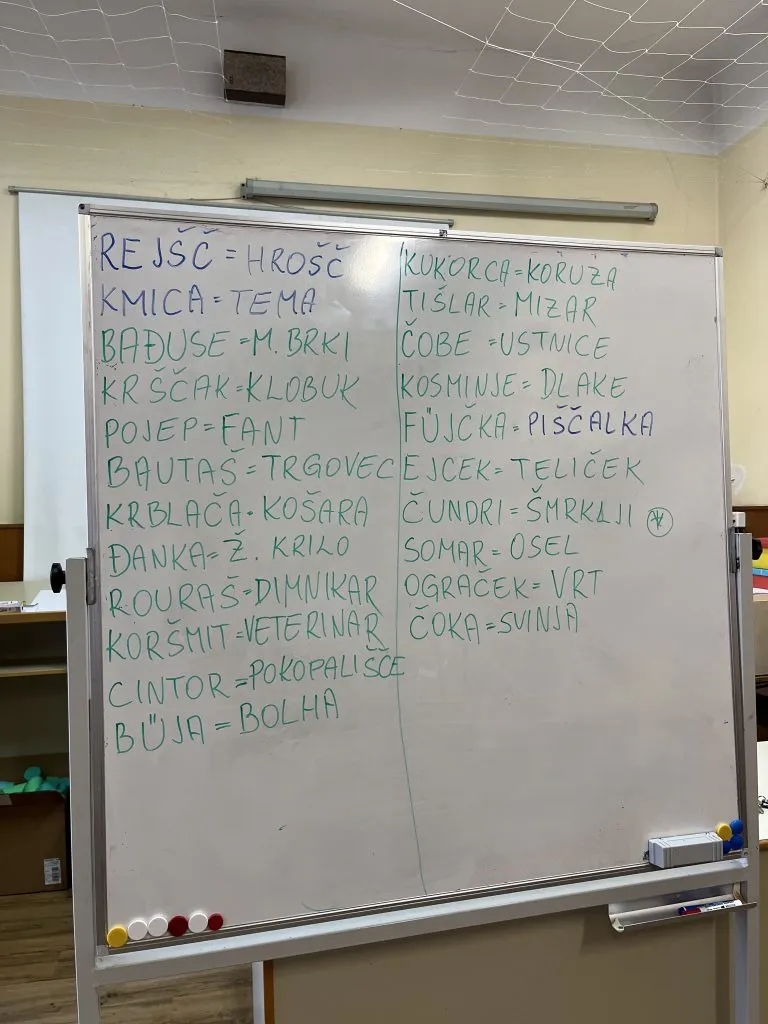 REJŠČ = HROŠČ
KMICA = TEMA
BAĐUSE = M. BRKI
KRŠČAK = KLOBUK
POJEP = FANT
BAUTAŠ = TRGOVEC
KRBLAČA = KOŠARA
ĐANKA = Ž. KRILO
ROURAŠ = DIMNIKAR
KORŠMIT = VETERINAR
CINTOR = POKOPALIŠČE
BÜJA = BOLHA
KUKORCA = KORUZA
TIŠLAR = MIZAR
ČOBE = USTNICE
KOSMINJE = DLAKE
FÜJČKA = PIŠČALKA
EJCEK = TELIČEK
ČUNDRI = ŠMRKLJI
SOMAR = OSEL
OGRAČEK = VRT
ČOKA = SVINJA